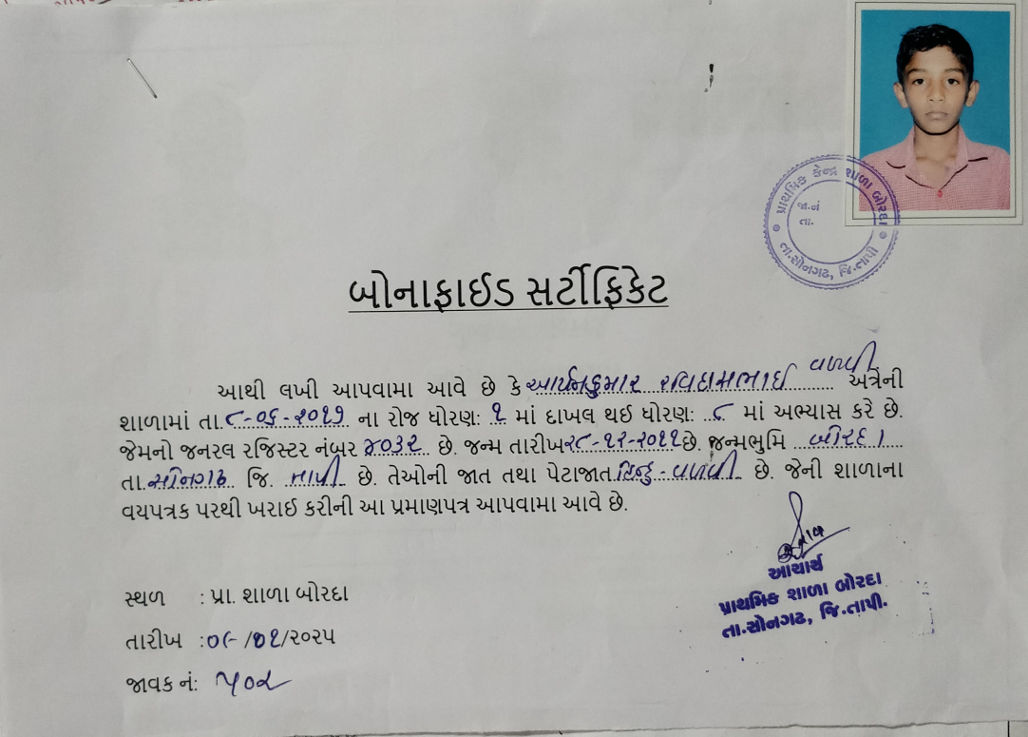 પ્રાથમિક કેન્દ્ર શાળા બોરદા
જા.નં
તા.
તા.સોનગઢ, જિ.તાપી
બોનાફાઈડ સર્ટીફિકેટ
આથી લખી આપવામા આવે છે કે આર્યનકુમાર રવિદાસભાઈ વળવી અત્રેની
શાળામાં તા. ૮-૦૬-૨૦૧૭ ના રોજ ધોરણ: ૧ માં દાખલ થઈ ધોરણ: ૮ માં અભ્યાસ કરે છે.
જેમનો જનરલ રજિસ્ટર નંબર ૪૦૩૨ છે. જન્મ તારીખ ૨૮-૧૨-૨૦૧૧ છે. જન્મભુમિ બોરદા
તા. સોનગઢ જિ. તાપી છે. તેઓની જાત તથા પેટાજાત હિન્દુ-વળવી છે. જેની શાળાના
વયપત્રક પરથી ખરાઈ કરીની આ પ્રમાણપત્ર આપવામા આવે છે.
આચાર્ય
પ્રાથમિક શાળા બોરદા
તા.સોનગઢ, જિ.તાપી.
સ્થળ : પ્રા. શાળા બોરદા
તારીખ : ૦૯/૦૧/૨૦૨૫
જાવક નં: ૫૦૨